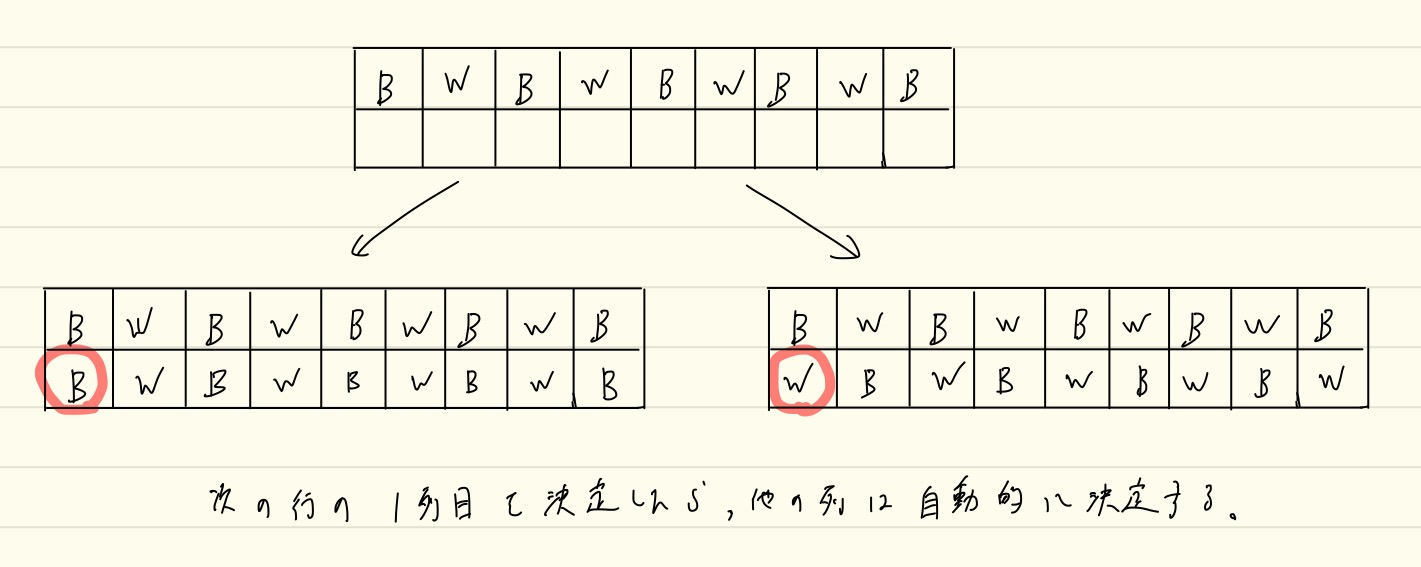 B W B W B W B W B
B W B W B W B W B
B W B W B W B W B
B W B W B W B W B
W B W B W B W B W
次の行の1列目を決定したら,他の列は自動的に決定する。